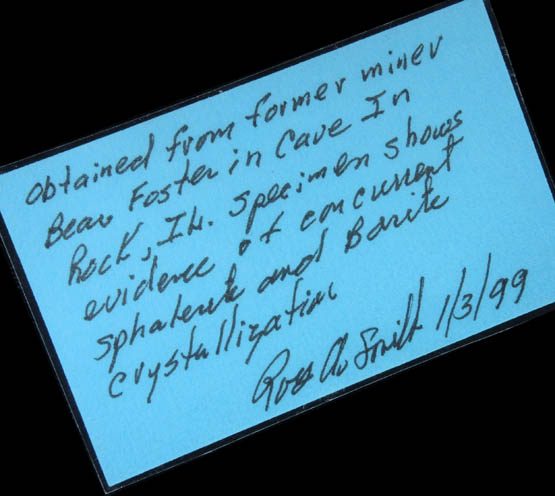 obtained from former miner
Bear Foster in Cave In
Rock, Ill. specimen shows
evidence of concurrent
sphalerite and Barite
crystallization
Ross A. Smith 1/3/99